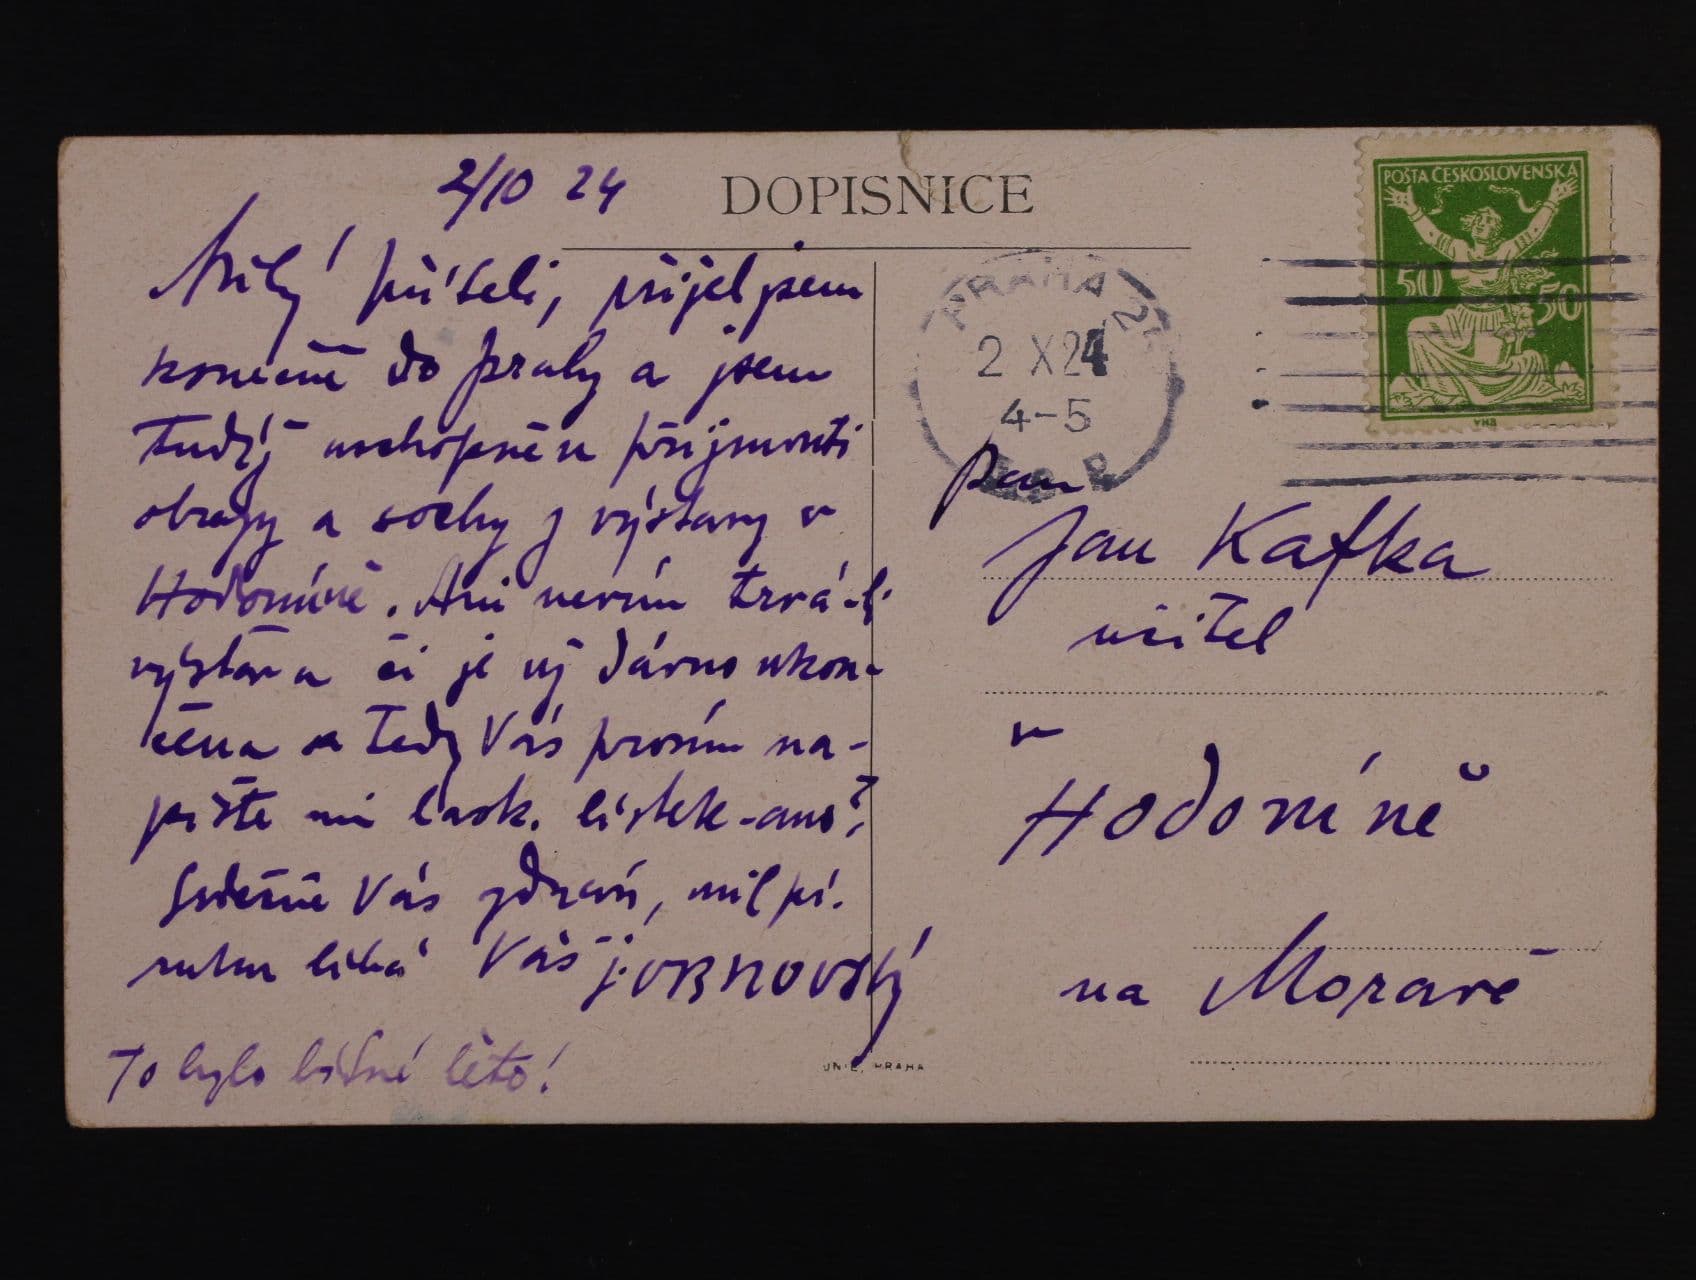 2/10 24
DOPISNICE
Milý příteli, přijel jsem
konečně do Prahy a jsem
tudíž uschopněn přijmouti
obrazy a sochy z výstavy v
Hodoníně. Ani nevím trvá-li
výstava či je už dávno ukon-
čena a tedy Vás prosím na-
pište mi lask. lístek - ano?
Srdečně Vás zdraví, mil pí.
ruku líbá Váš
To bylo bídné léto!
POŠTA ČESKOSLOVENSKÁ
50 50
PRAHA 25
2 X 24
4-5
Pan
Jan Kafka
učitel
v
Hodoníně
na Moravě
UNIE, PRAHA